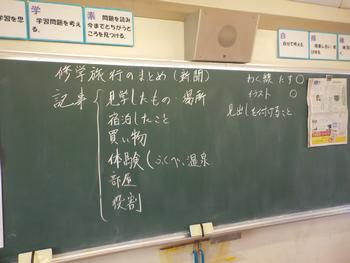 学習問題を考える。
学
素
問題を読み
今までとちがうと
ころを見つける。
自
自分で考える。
修学旅行のまとめ(新聞)
記事
見学したもの・場所
宿泊したこと
買い物
体験(ふくべ、温泉
部屋
役割
わく線 たす○
イラスト ○
見出しを付けること